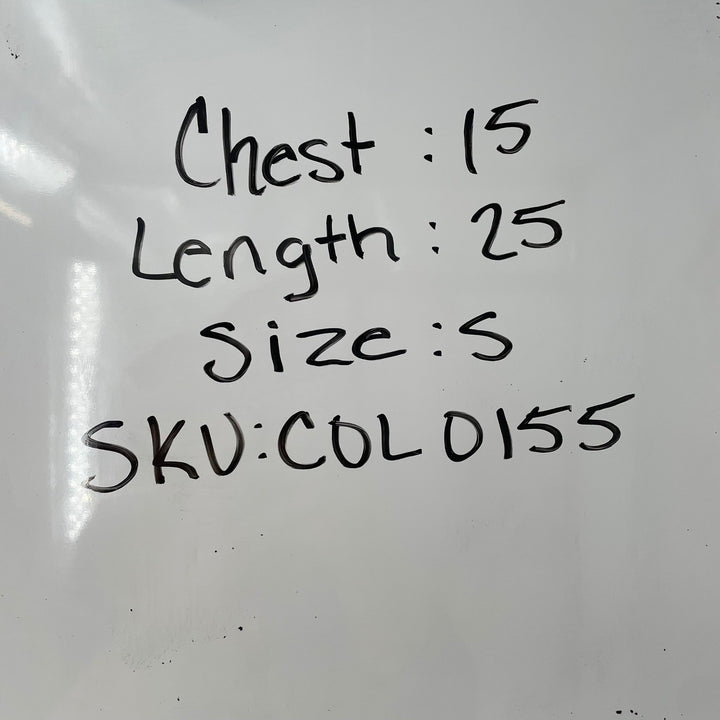 Chest : 15
Length : 25
Size : S
SKU:COL0155